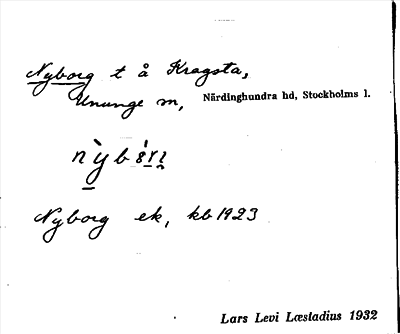 Nyborg t å Kragsta,
Ununge sn, Närdinghundra hd, Stockholms l.
Nyborg ek, kb 1923
Lars Levi Læstadius 1932